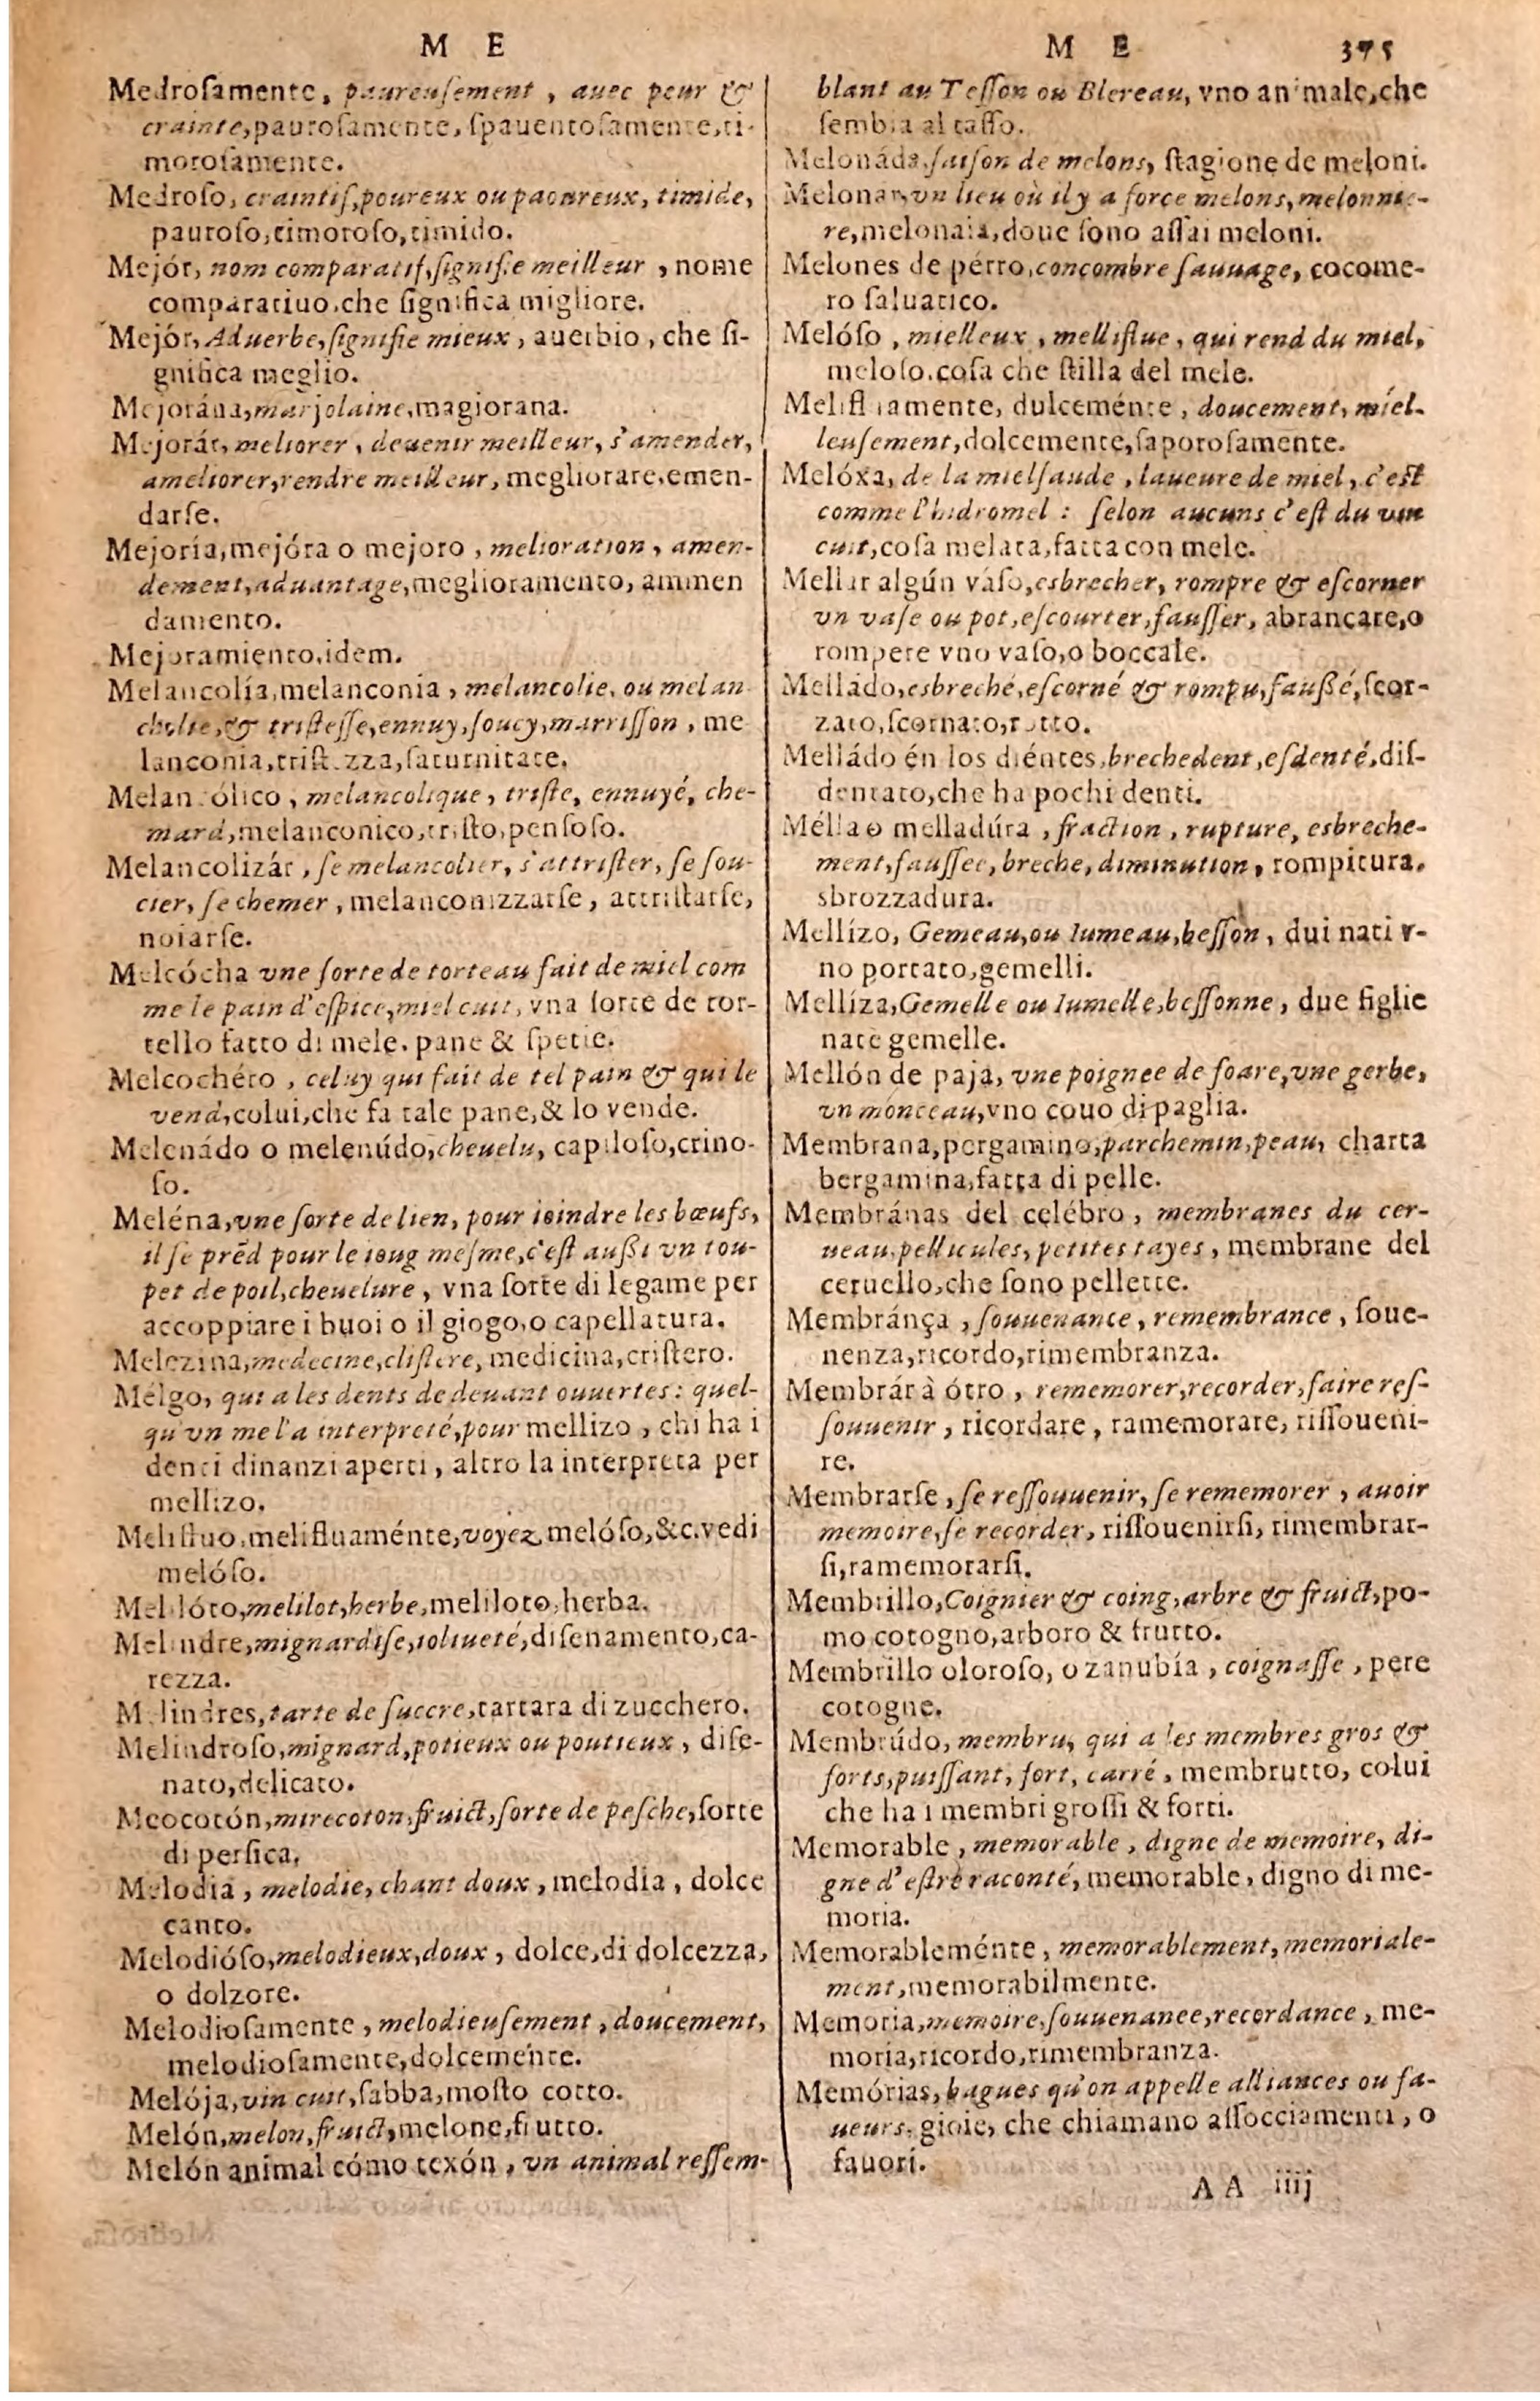 M E
Medroſamente, paureuſement, auec peur &
crainte, pauroſamente, ſpauentoſamente, ti-
moroſamente.
Medroſo, craintif, poureux ou paoureux, timide,
pauroſo, timoroſo, timido.
Mejór, nom comparatif, ſignifie meilleur, nome
comparatiuo, che ſignifica migliore.
Mejór, Aduerbe, ſignifie mieux, auerbio, che ſi-
gnifica meglio.
Mejorána, marjolaine, magiorana.
Mejorár, meliorer, deuenir meilleur, s'amender,
ameliorer, rendre meilleur, megliorare, emen-
darſe.
Mejoría, mejóra o mejoro, melioration, amen-
dement, aduantage, meglioramento, ammen
damento.
Mejoramiento, idem.
Melancolía, melanconia, melancolie, ou melan
cholie, & triſteſſe, ennuy, ſoucy, marriſſon, me
lanconia, triſtezza, ſaturnitate.
Melancólico, melancolique, triſte, ennuyé, che-
mard, melanconico, triſto, penſoſo.
Melancolizár, ſe melancolier, s'attriſter, ſe ſou-
cier, ſe chemer, melanconizzarſe, attriſtarſe,
noiarſe.
Melcócha vne ſorte de torteau fait de miel com
me le pain d'eſpice, miel cuit, vna ſorte de tor-
tello fatto di mele, pane & ſpetie.
Melcochéro, celuy qui fait de tel pain & qui le
vend, colui, che fa tale pane, & lo vende.
Melenádo o melenúdo, cheuelu, capiloſo, crino-
ſo.
Meléna, vne ſorte de lien, pour ioindre les bœufs,
il ſe prẽd pour le ioug meſme, c'eſt außi vn tou-
pet de poil, cheuelure, vna ſorte di legame per
accoppiare i buoi o il giogo, o capellatura.
Melezina, medecine, cliſtere, medicina, criſtero.
Mélgo, qui a les dents de deuant ouuertes: quel-
qu'vn me l'a interpreté, pour mellizo, chi ha i
denti dinanzi aperti, altro la interpreta per
mellizo.
Melifluo, melifluaménte, voyez melóſo, &c. vedi
melóſo.
Melilóto, melilot, herbe, meliloto, herba.
Melindre, mignardiſe, ioliueté, diſenamento, ca-
rezza.
Melindres, tarte de ſuccre, tartara di zucchero.
Melindroſo, mignard, potieux ou poutieux, diſe-
nato, delicato.
Meocotón, mirecoton, fruict, ſorte de peſche, ſorte
di perſica.
Melodia, melodie, chant doux, melodia, dolce
canto.
Melodióſo, melodieux, doux, dolce, di dolcezza,
o dolzore.
Melodioſamente, melodieuſement, doucement,
melodioſamente, dolcemente.
Melója, vin cuit, ſabba, moſto cotto.
Melón, melon, fruict, melone, frutto.
Melón animal cómo texón, vn animal reſſem-
M E 375
blant au Teſſon ou Blereau, vno animale, che
ſembia al taſſo.
Melonáda, ſaiſon de melons, ſtagione de meloni.
Melonar, vn lieu où il y a force melons, melonnie-
re, melonaia, doue ſono aſſai meloni.
Melones de perro, concombre ſauuage, cocome-
ro ſaluatico.
Melóſo, mielleux, melliflue, qui rend du miel,
meloſo, coſa che ſtilla del mele.
Melifluamente, dulceménte, doucement, miel-
leuſement, dolcemente, ſaporoſamente.
Melóxa, de la mielſaude, laueure de miel, c'eſt
comme l'hidromel: ſelon aucuns c'eſt du vin
cuit, coſa melata, fatta con mele.
Mellar algún váſo, esbrecher, rompre & eſcorner
vn vaſe ou pot, eſcourter, fauſſer, abrancare, o
rompere vno vaſo, o boccale.
Melládo, esbreché, eſcorné & rompu, faußé, ſcor-
zato, ſcornato, rotto.
Melládo én los diéntes, brechedent, eſdenté, diſ-
dentato, che ha pochi denti.
Mélla o melladúra, fraction, rupture, esbreche-
ment, fauſſee, breche, diminution, rompitura,
sbrozzadura.
Mellízo, Gemeau, ou Iumeau, beſſon, dui nati v-
no portato, gemelli.
Mellíza, Gemelle ou Iumelle, beſſonne, due figlie
nate gemelle.
Mellón de paja, vne poignee de foare, vne gerbe,
vn monceau, vno couo di paglia.
Membrana, pergamino, parchemin, peau, charta
bergamina, fatta di pelle.
Membránas del celébro, membranes du cer-
ueau, pellicules, petites tayes, membrane del
ceruello, che ſono pellette.
Membránça, ſouuenance, remembrance, ſoue-
nenza, ricordo, rimembranza.
Membrár à ótro, rememorer, recorder, faire reſ-
ſouuenir, ricordare, ramemorare, riſſoueni-
re.
Membrarſe, ſe reſſouuenir, ſe rememorer, auoir
memoire, ſe recorder, riſſouenirſi, rimembrar-
ſi, ramemorarſi.
Membrillo, Coignier & coing, arbre & fruict, po-
mo cotogno, arboro & frutto.
Membrillo oloroſo, o zanubía, coignaſſe, pere
cotogne.
Membrúdo, membru, qui a les membres gros &
forts, puiſſant, fort, carré, membrutto, colui
che ha i membri groſſi & forti.
Memorable, memorable, digne de memoire, di-
gne d'eſtre raconté, memorable, digno di me-
moria.
Memorableménte, memorablement, memoriale-
ment, memorabilmente.
Memoria, memoire, ſouuenance, recordance, me-
moria, ricordo, rimembranza.
Memórias, bagues qu'on appelle alliances ou fa-
ueurs, gioie, che chiamano aſſocciamenti, o
fauori.
AA iiij